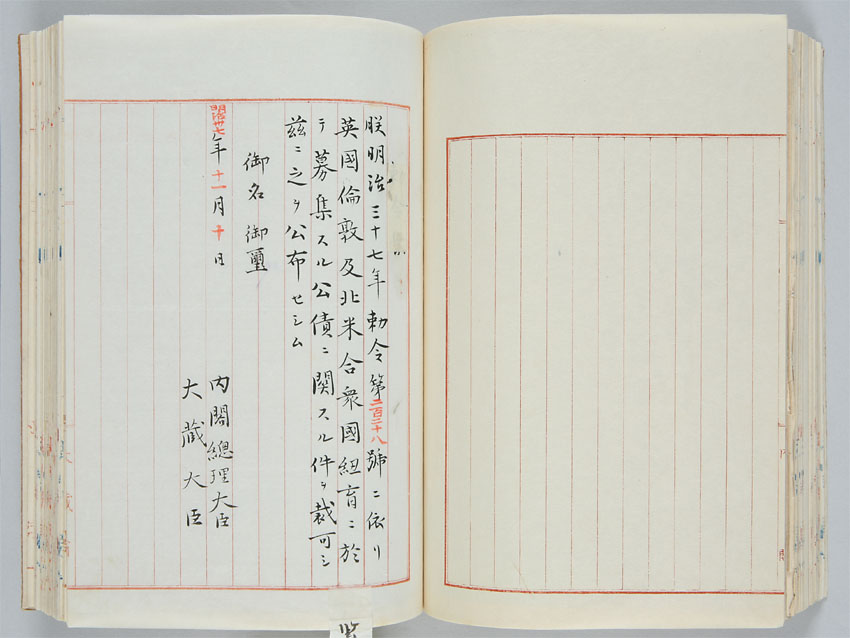 朕明治三十七年勅令第二百二十八號ニ依リ
英國倫敦及北米合衆國紐育ニ於
テ募集スル公債ニ関スル件ヲ裁可シ
茲ニ之ヲ公布セシム
御名御璽
明治卅七年十一月十日
内閣總理大臣
大蔵大臣